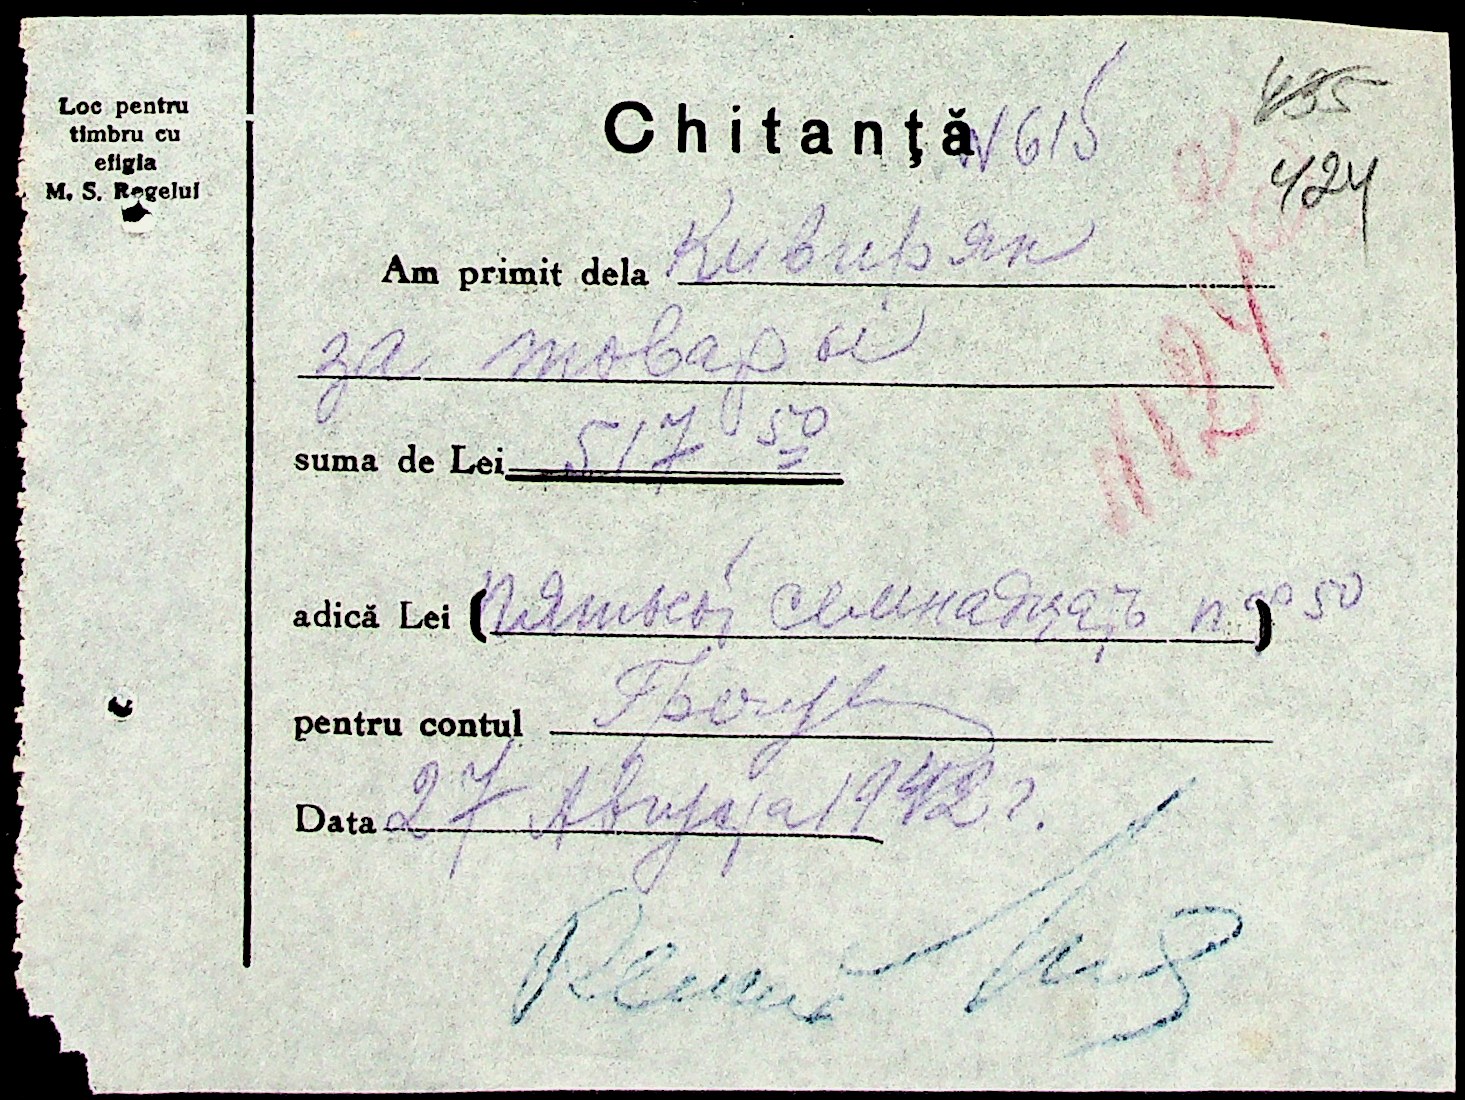 Loc pentru
timbru cu
efigia
M. S. Regelui
Chitanță N 615
435
424
Am primit dela
за товары
suma de Lei 517 50
adică Lei (пятьсот семнадцать п 50)
pentru contul
Data 27 Августа 1942 г.